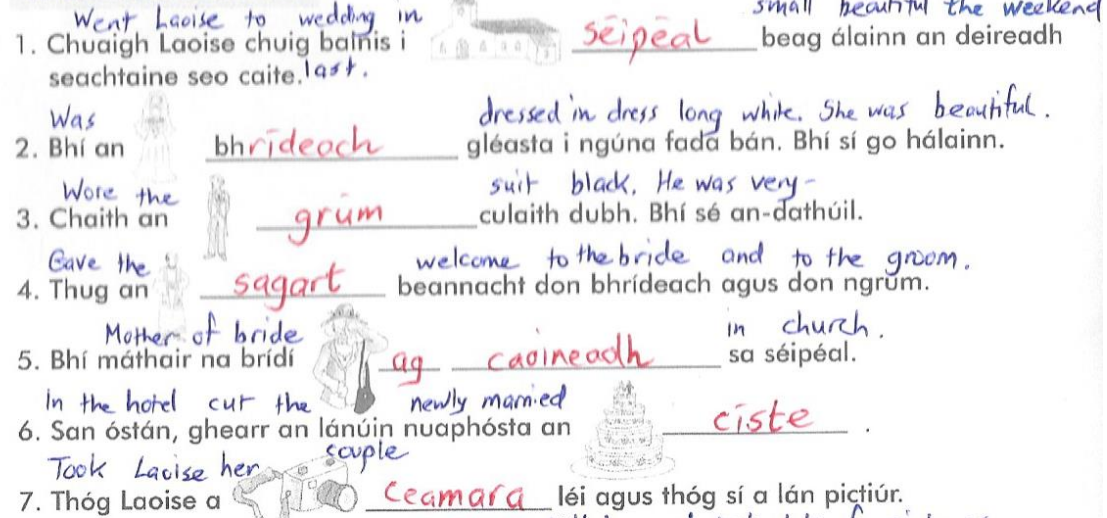 Went Laoise to wedding in small beautiful the weekend
1. Chuaigh Laoise chuig bainis i sēipēal beag álainn an deireadh
seachtaine seo caite. last.
Was dressed in dress long white. She was beautiful.
2. Bhí an bhrīdeach gléasta i ngúna fada bán. Bhí sí go hálainn.
Wore the suit black. He was very-
3. Chaith an grūm culaith dubh. Bhí sé an-dathúil.
Gave the welcome to the bride and to the groom.
4. Thug an sagart beannacht don bhrídeach agus don ngrúm.
Mother of bride in church.
5. Bhí máthair na brídí ag caoineadh sa séipéal.
In the hotel cut the newly married
6. San óstán, ghearr an lánúin nuaphósta an cīste .
Took Laoise her couple
7. Thóg Laoise a ceamara léi agus thóg sí a lán pictiúr.